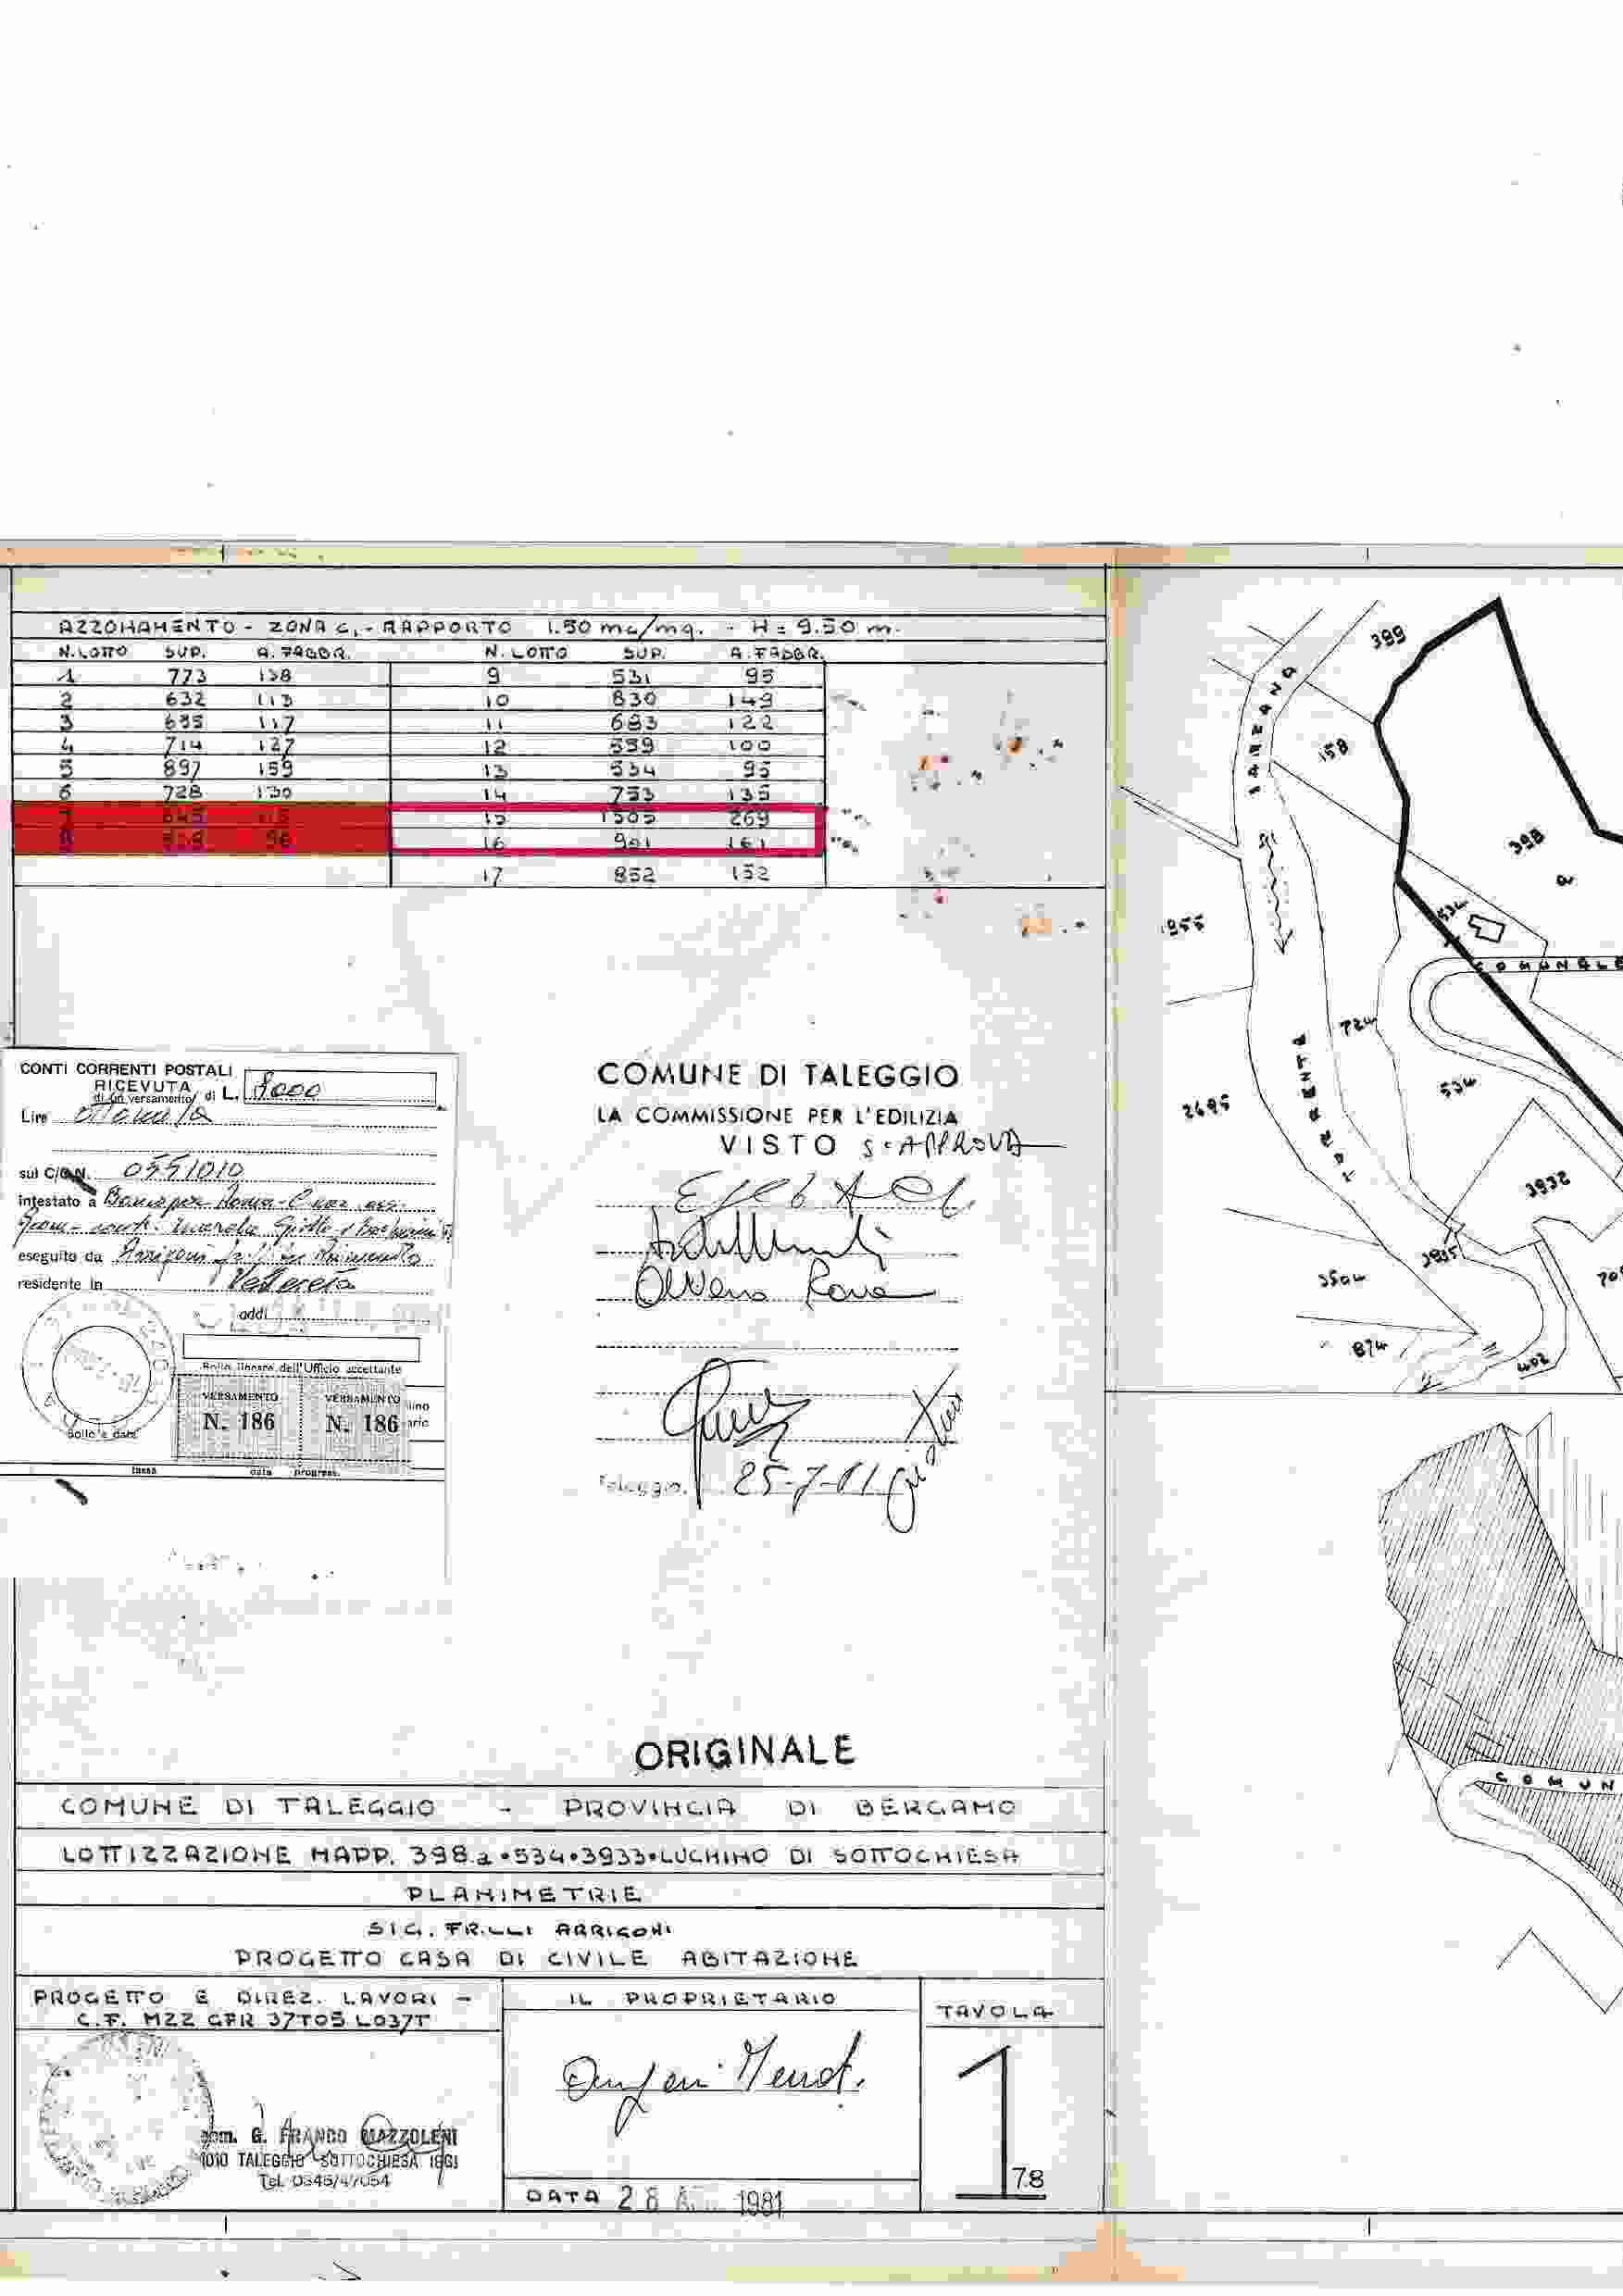 AZZONAMENTO - ZONA C1 - RAPPORTO 1.50 mc/mq. - H = 9.50 m.
N. LOTTO SUP. A. FABBR. N. LOTTO SUP. A. FABBR.
1 773 138 9 531 95
2 632 113 10 830 149
3 655 117 11 683 122
4 714 127 12 559 100
5 897 159 13 534 95
6 728 130 14 753 135
7 645 115 15 1505 269
8 96 16 901 161
17 852 152
CONTI CORRENTI POSTALI
RICEVUTA
di un versamento di L. 8000
Lire ottomila
sul C/C N. 0551010
intestato a
eseguito da Arrigoni
residente in
addì
Bollo lineare dell'Ufficio accettante
VERSAMENTO VERSAMENTO
N. 186 N. 186
Bollo e data
tassa data progress.
COMUNE DI TALEGGIO
LA COMMISSIONE PER L'EDILIZIA
VISTO SI APPROVA
Taleggio, 25-7-81
ORIGINALE
COMUNE DI TALEGGIO - PROVINCIA DI BERGAMO
LOTTIZZAZIONE MAPP. 398.a•534•3933•LUCHINO DI SOTTOCHIESA
PLANIMETRIE
SIG. FR.LLI ARRIGONI
PROGETTO CASA DI CIVILE ABITAZIONE
PROGETTO E DIREZ. LAVORI -
C.F. MZZ GFR 37T05 L037T
geom. G. FRANCO MAZZOLENI
TALEGGIO SOTTOCHIESA (BG)
Tel. 0345/47054
IL PROPRIETARIO
DATA 28 1981
TAVOLA
1
78
399
158
398
a
534
COMUNALE
1955
724
534
2695
TORRENTE
3932
3504
874
402
COMUN